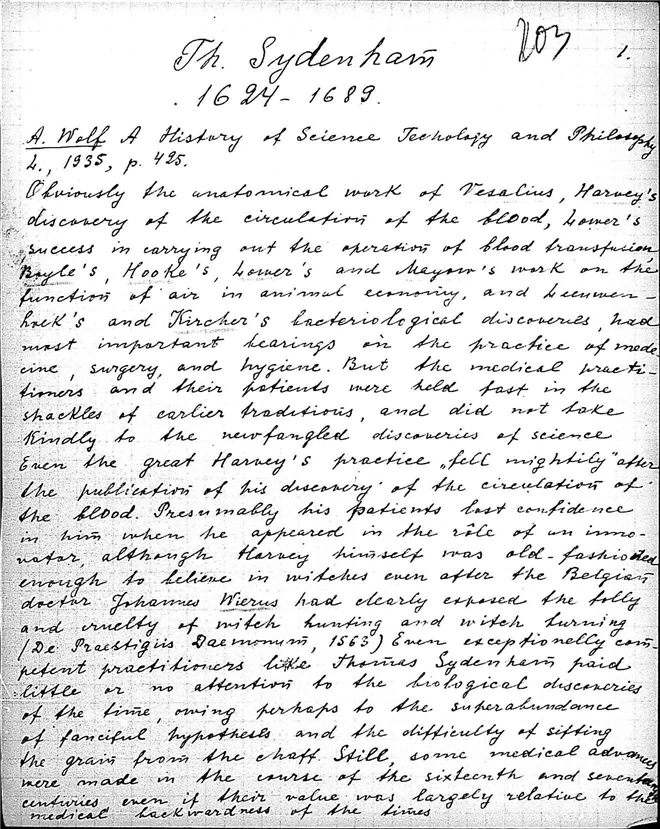 203
1.
Th. Sydenham
1624 - 1689.
A. Wolf A History of Science Techology and Philosophy
L., 1935, p. 425.
Obviously the anatomical work of Vesalius, Harvey's
discovery of the circulation of the blood, Lower's
success in carrying out the operation of blood transfusion,
Boyle's, Hooke's, Lower's and Mayow's work on the
function of air in animal economy, and Leeuwen-
hoek's and Kircher's bacteriological discoveries, had
most important bearings on the practice of mede
cine, surgery, and hygiene. But the medical practi-
tioners and their patients were held fast in the
shackles of earlier traditions, and did not take
kindly to the newfangled discoveries of science
Even the great Harvey's practice „fell mightily" after
the publication of his discovery of the circulation of
the blood. Presumably his patients lost confidence
in him when he appeared in the rôle of an inno-
vator, although Harvey himself was old-fashioned
enough to believe in witches even after the Belgian
doctor Johannes Wierus had clearly exposed the folly
and cruelty of witch hunting and witch burning
(De Praestigiis Daemonum, 1563) Even exceptionelly com-
petent practitioners like Thomas Sydenham paid
little or no attention to the biological discoveries
of the time, owing perhaps to the superabundance
of fanciful hypothesis and the difficulty of sifting
the grain from the chaff. Still, some medical advances
were made in the course of the sixteenth and seventeenth
centuries even if their value was largely relative to the
medical backwardness of the times